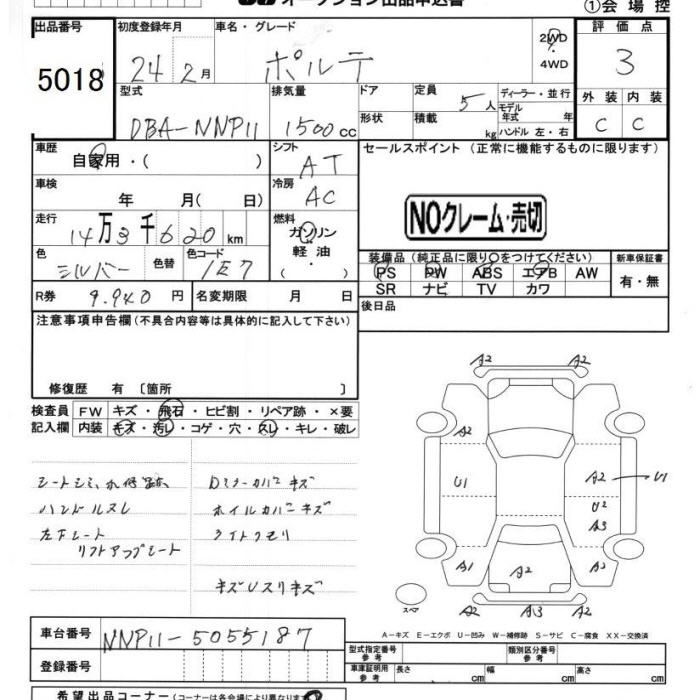 オークション出品申込書
①会場控
出品番号 5018
初度登録年月 24年2月
車名・グレード ポルテ
2WD・4WD
評価点 3
型式 DBA-NNP11
排気量 1500cc
ドア
形状
定員 5人
積載 kg
ディーラー・並行
モデル年式 年
ハンドル 左・右
外装 C
内装 C
車歴 自家用・( )
シフト AT
セールスポイント (正常に機能するものに限ります)
車検 年 月(日)
冷房 AC
NOクレーム・売切
走行 14万3千620km
燃料 ガソリン・軽油・
色 シルバー
色替
色コード 1E7
装備品(純正品に限り○をつけてください)
PS PW ABS エアB AW
SR ナビ TV カワ
新車保証書 有・無
R券 9.940円
名変期限 月 日
後日品
注意事項申告欄(不具合内容等は具体的に記入して下さい)
修復歴 有 〔箇所 〕
検査員記入欄
FW キズ・飛石・ヒビ割・リペア跡・×要
内装 キズ・汚れ・コゲ・穴・スレ・キレ・破レ
シートシミ、
Dミラーカバーキズ
ハンドルスレ
ホイルカバーキズ
左下シート
ライトクモリ
リフトアップシート
キズUスリキズ
A2 A2
A2
U1
A2 U1
U2
A3
A1
A2
A2
A2 A13 A2
スペア
A-キズ E-エクボ U-凹み W-補修跡 S-サビ C-腐食 XX-交換済
車台番号 NNP11-5055187
登録番号
型式指定番号 参考
類別区分番号 参考
車庫証明用 参考
長さ cm
幅 cm
高さ cm
希望出品コーナー(コーナーは各会場により異なります)